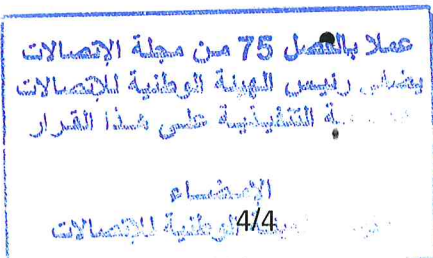 عملا بالفصل 75 من مجلة الإتصالات
يضفي رئيس الهيئة الوطنية للإتصالات
ة التنفيذية على هذا القرار
الإمضاء
الهيئة الوطنية للإتصالات
4/4